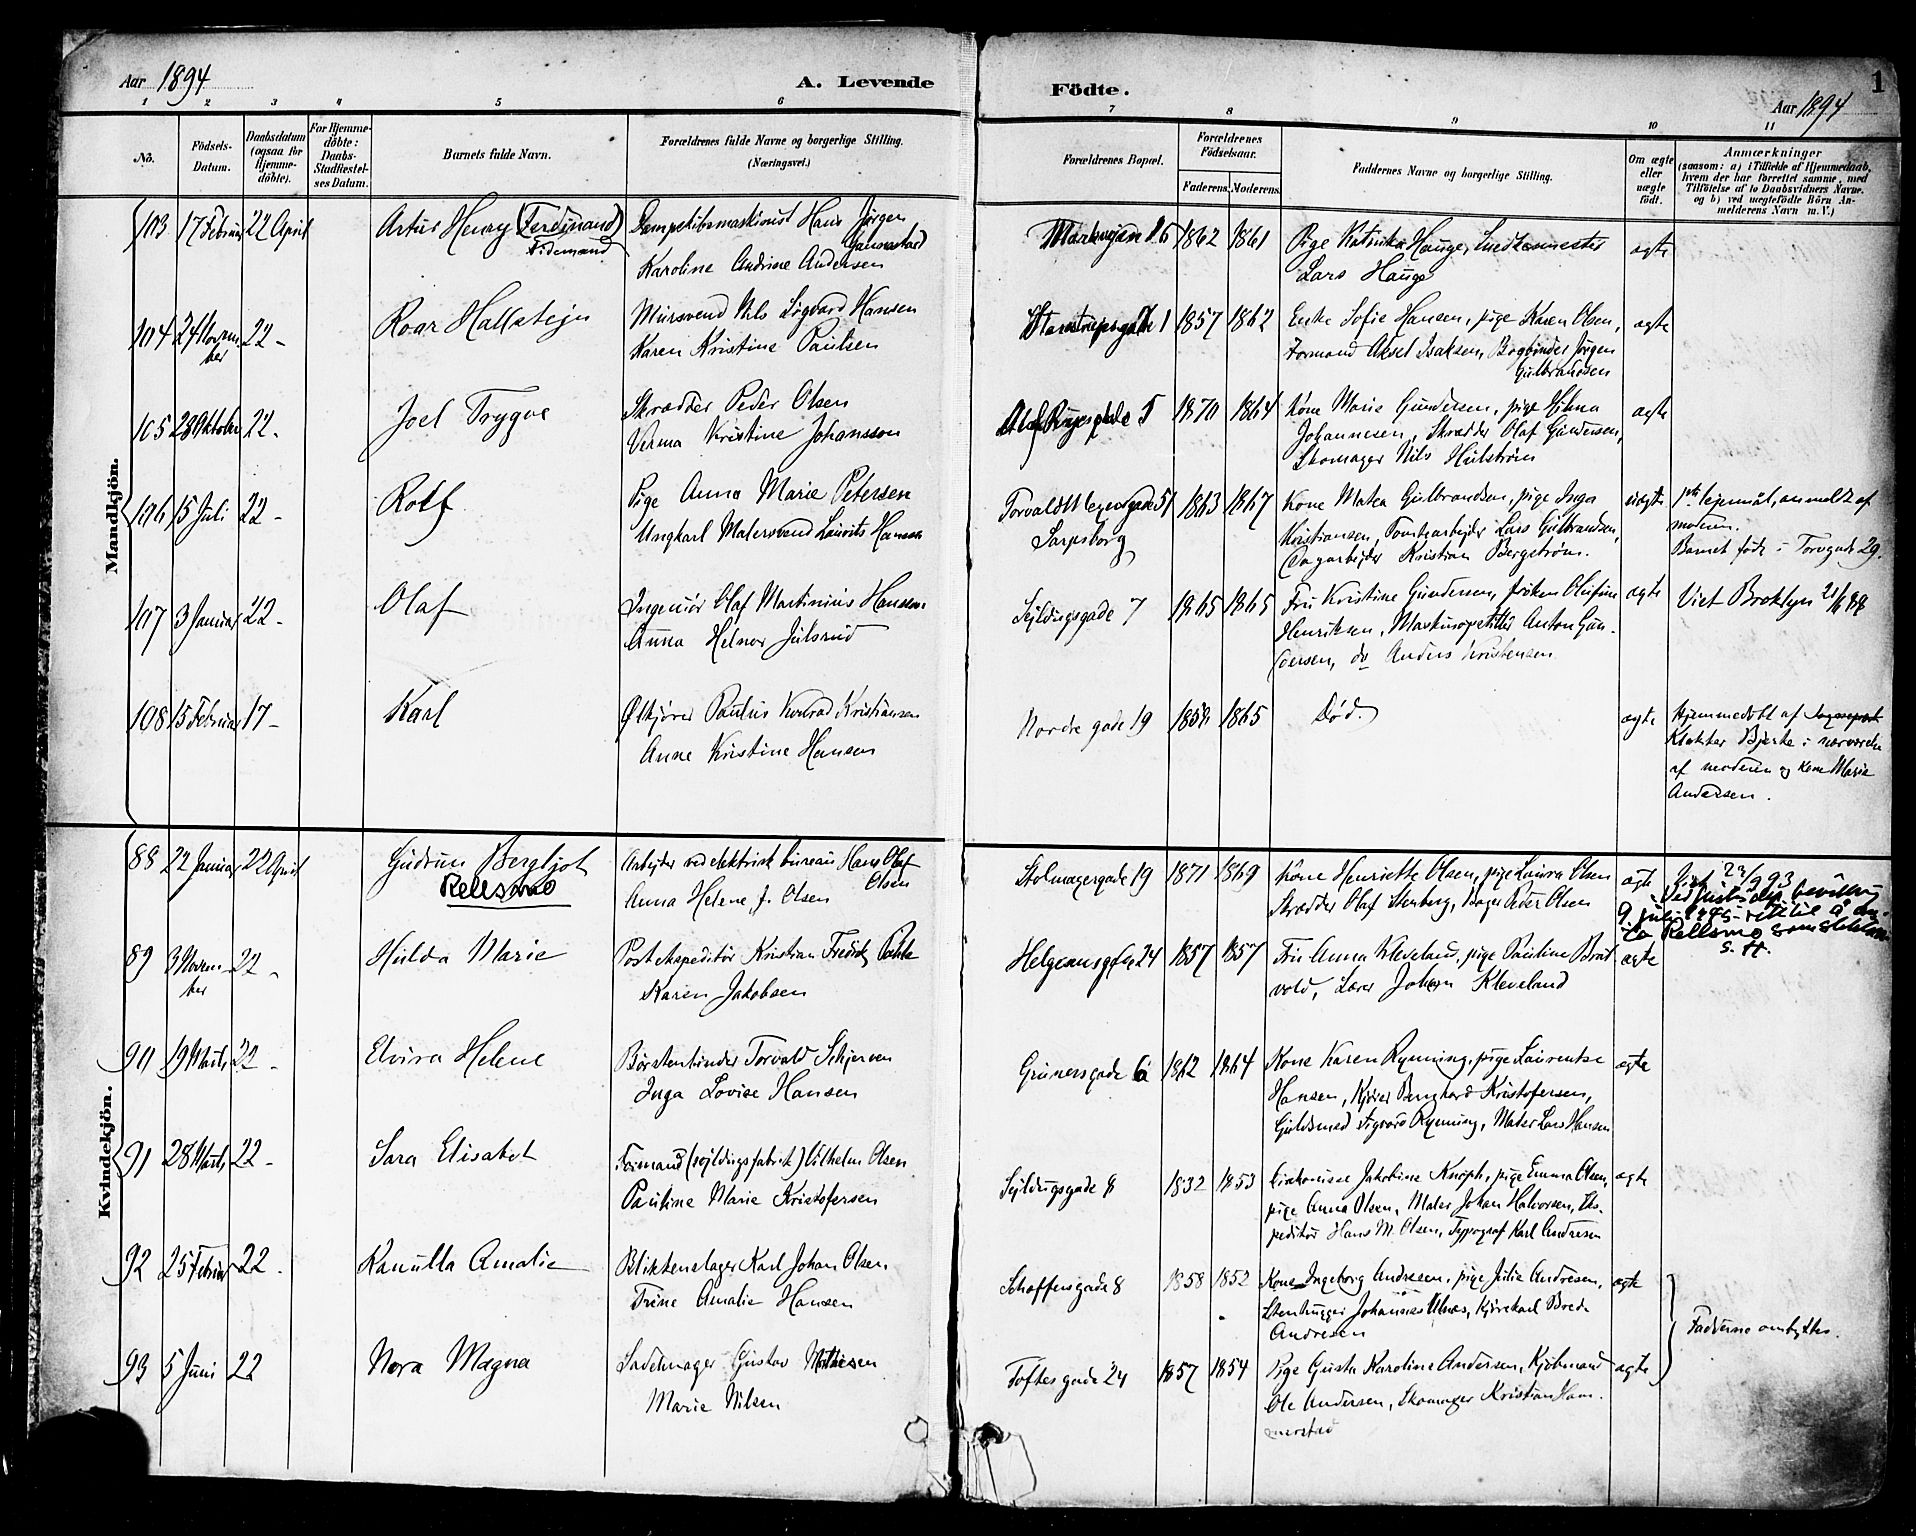 Aar 1894
A. Levende
Födte.
1
Aar 1894
1 2 3 4 5 6 7 8 9 10 11
No.
Födsels-
Datum.
Daabsdatum
(ogsaa for
Hjemme-
döbte).
For Hjemme-
döbte:
Daabs-
Stadfæstel-
ses Datum.
Barnets fulde Navn.
Forældrenes fulde Navne og borgerlige Stilling.
(Næringsvei.)
Forældrenes Bopæl.
Forældrenes
Födselsaar.
Faderens. Moderens.
Faddernes Navne og borgerlige Stilling.
Om ægte
eller
uægte
födt.
Anmærkninger
(saasom: a) i Tilfælde af Hjemmedaab,
hvem der har forrettet samme, med
Tilföielse af to Daabsvidners Navne.
og b) ved uægtefödte Börn An-
melderens Navn m. V.)
Mandkjön.
103 17 Februar 22 April Artur Henry (Ferdinand) Hans Jørgen
Tidemand
Karoline Andrine Andersen
Markvejen 16 1862 1861 Pige Katinka Hauge, Snedkermester
Lars Hauge
ægte
104 24 Novem-
ber
22 - Roar Hallstejn Mursvend Nils Sigvard Hansen
Karen Kristine Paulsen
1 1857 1862 Enke Sofie Hansen, pige Karen Olsen,
Formand Aksel Isaksen, Bogbinder Jørgen
Gulbrandsen
ægte
105 28 Oktober 22 - Joel Trygve Skrædder Peder Olsen
Verma Kristine Johansson
Olaf Ryesplads 5 1870 1864 Kone Marie Gundersen, pige Hilma
Johannesen, Skrædder Olaf Gundersen,
Skomager Nils Hulstrøm
ægte
106 15 Juli 22 - Rolf Pige Anna Marie Petersen
Ungkarl Malersvend Laurits Hansen
Torvald Meyersgade 51
Sarpsborg
1863 1867 Kone Matea Gulbrandsen, pige Inga
Kristiansen, Tomtearbejder Lars Gulbrandsen,
Dagarbejder Kristian Bergstrøm.
uægte 1ste lejemål, anmeldt af
moderen.
Barnet født i Torvgade 29.
107 3 Januar 22 - Olaf Ingeniør Olaf Martinius Hansen
Anna Helnor Julsrud
Sejldugsgade 7 1865 1865 Fru Kristine Gundersen, frøken Olufine
Henriksen, Maskinopsetter Anton Gun-
dersen, do Anders Kristensen
ægte Viet Broklyn 21/4 88
108 15 Februar 17 - Karl Ølkjører Paulus Konrad Kristiansen
Anne Kristine Hansen
Nordre gade 19 1865 Død.
ægte Hjemmedøbt af
Klokker Bjerke i nærværelse
af moderen og kone Marie
Andersen.
Kvindekjön.
88 22 Januar 22 April Gudrun Bergljot
Rellsmo
Arbejder ved elektrisk bureau Hans Olaf
Olsen
Anna Helene, f. Olsen
Stolmagergade 19 1871 1869 Kone Henriette Olsen, pige Laura Olsen
Skrædder Olaf Stenberg, Bager Peder Olsen
ægte Viet 22/9 93
Ved just. dep. bevilling
9 juli
ta Rellsmo som slektsnavn
S. H.
89 3 Novem-
ber
22 - Hulda Marie Postekspeditør Kristian Fredrik
Karen Jakobsen
Helgesensgade 24 1857 1857 Fru Anna Kleveland, pige Pauline Brat
vold, Lærer Johan Kleveland
ægte
90 19 Marts 22 - Elvira Helene Børstenbinder Torvald Schjerven
Inga Lovise Hansen
Grünersgade 6 1862 1864 Kone Karen Rynning, pige Laurentse
Hansen, Kjører Bernhard Kristofersen,
Guldsmed Sigvard Rynning, Maler Lars Hansen
ægte
91 28 Marts 22 - Sara Elisabet Formand (sejldugsfabrik) Vilhelm Olsen
Pauline Marie Kristofersen
Sejldugsgade 8 1832 1853 Diakonisse Jakobine Knoph, pige Emma Olsen,
pige Anna Olsen, Maler Johan Halvorsen, Eks-
peditør Hans M. Olsen, Typograf Karl Andresen
ægte
92 25 Februar 22 - Kamilla Amalie Blikkenslager Karl Johan Olsen
Trine Amalie Hansen
Schoffersgade 8 1858 1852 Kone Ingeborg Andresen, pige Julie Andresen,
Stenhugger Johannes Ulnæs, Kjørekarl Brede
Andresen
ægte
Fadderne ombyttes.
93 5 Juni 22 Nora Magna Sadelmager Gustav Mathisen
Marie Nilsen
Toftesgade 24 1857 1854 Pige Gusta Karoline Andersen, Kjøbmand
Ole Andersen, Skomager Kristian Ham-
merstad
ægte